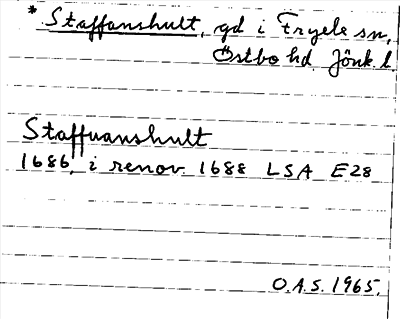 * Staffanshult, gd i Fryele sn,
Östbo hd. Jönk. l.
Staffuanshult
1686, i renov. 1688 LSA E28
O.A.S. 1965.